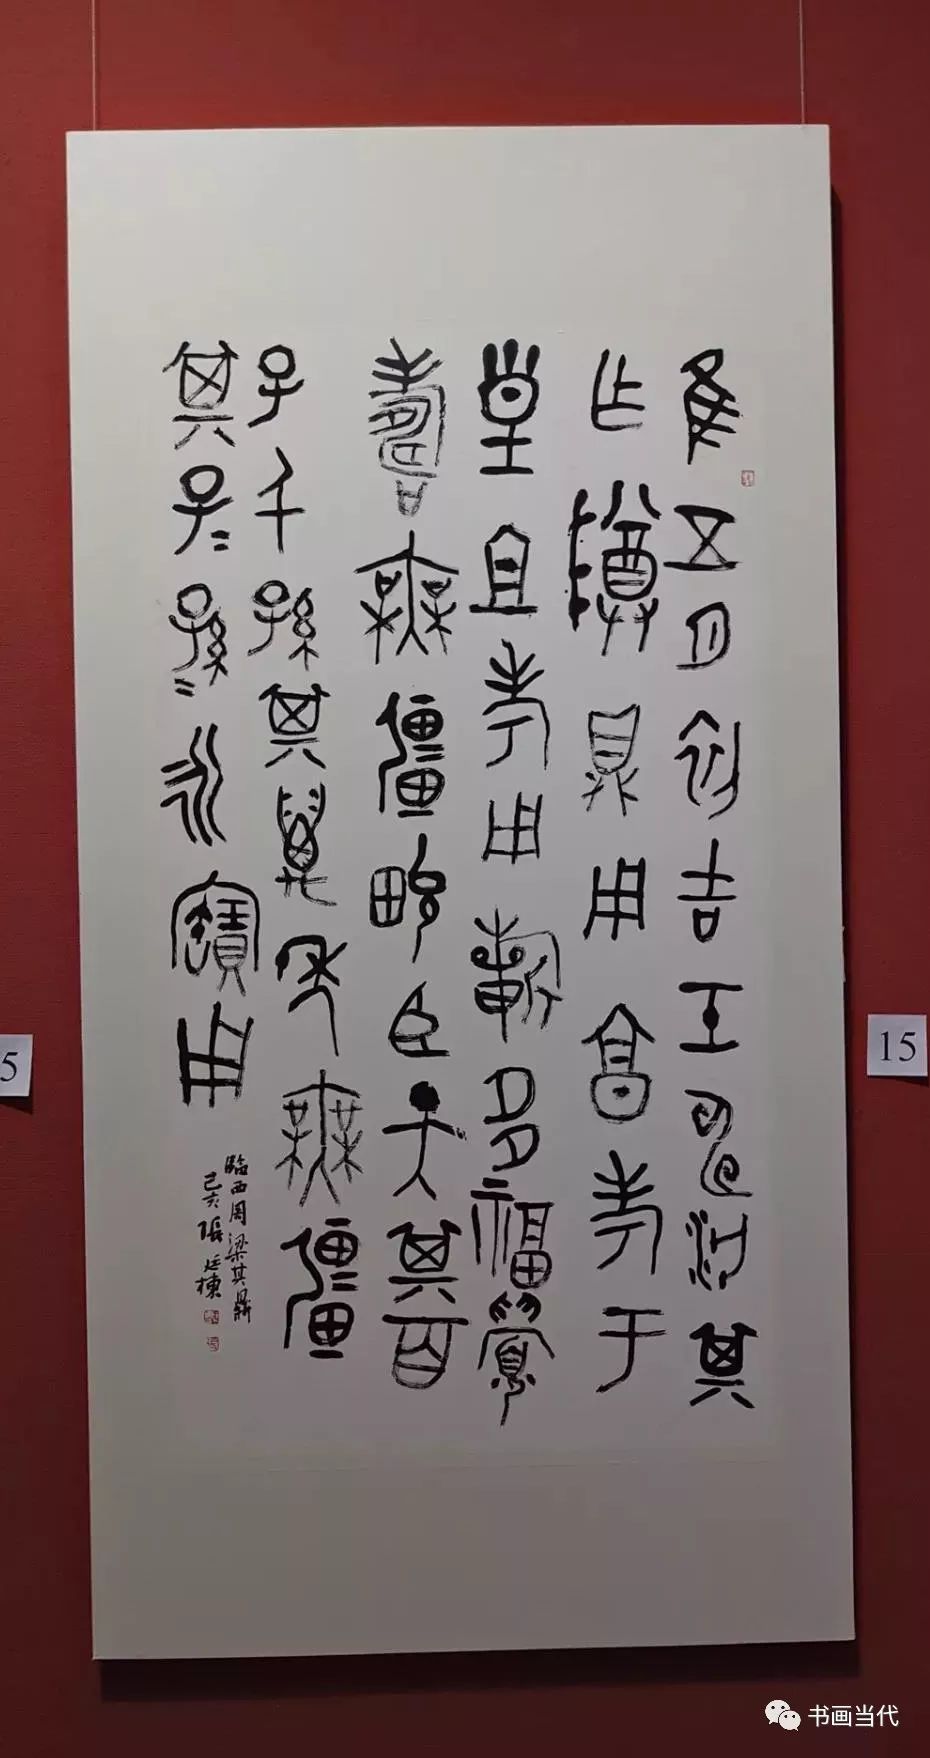 隹五月初吉壬申汈其
乍𬯚鼎用亯考于
皇且考用𣄨多福眉
壽無彊畯臣天其百
子千孫其萬年無彊
其子=孫=永寶用
臨西周梁其鼎
己亥張廷棟
5
15
书画当代